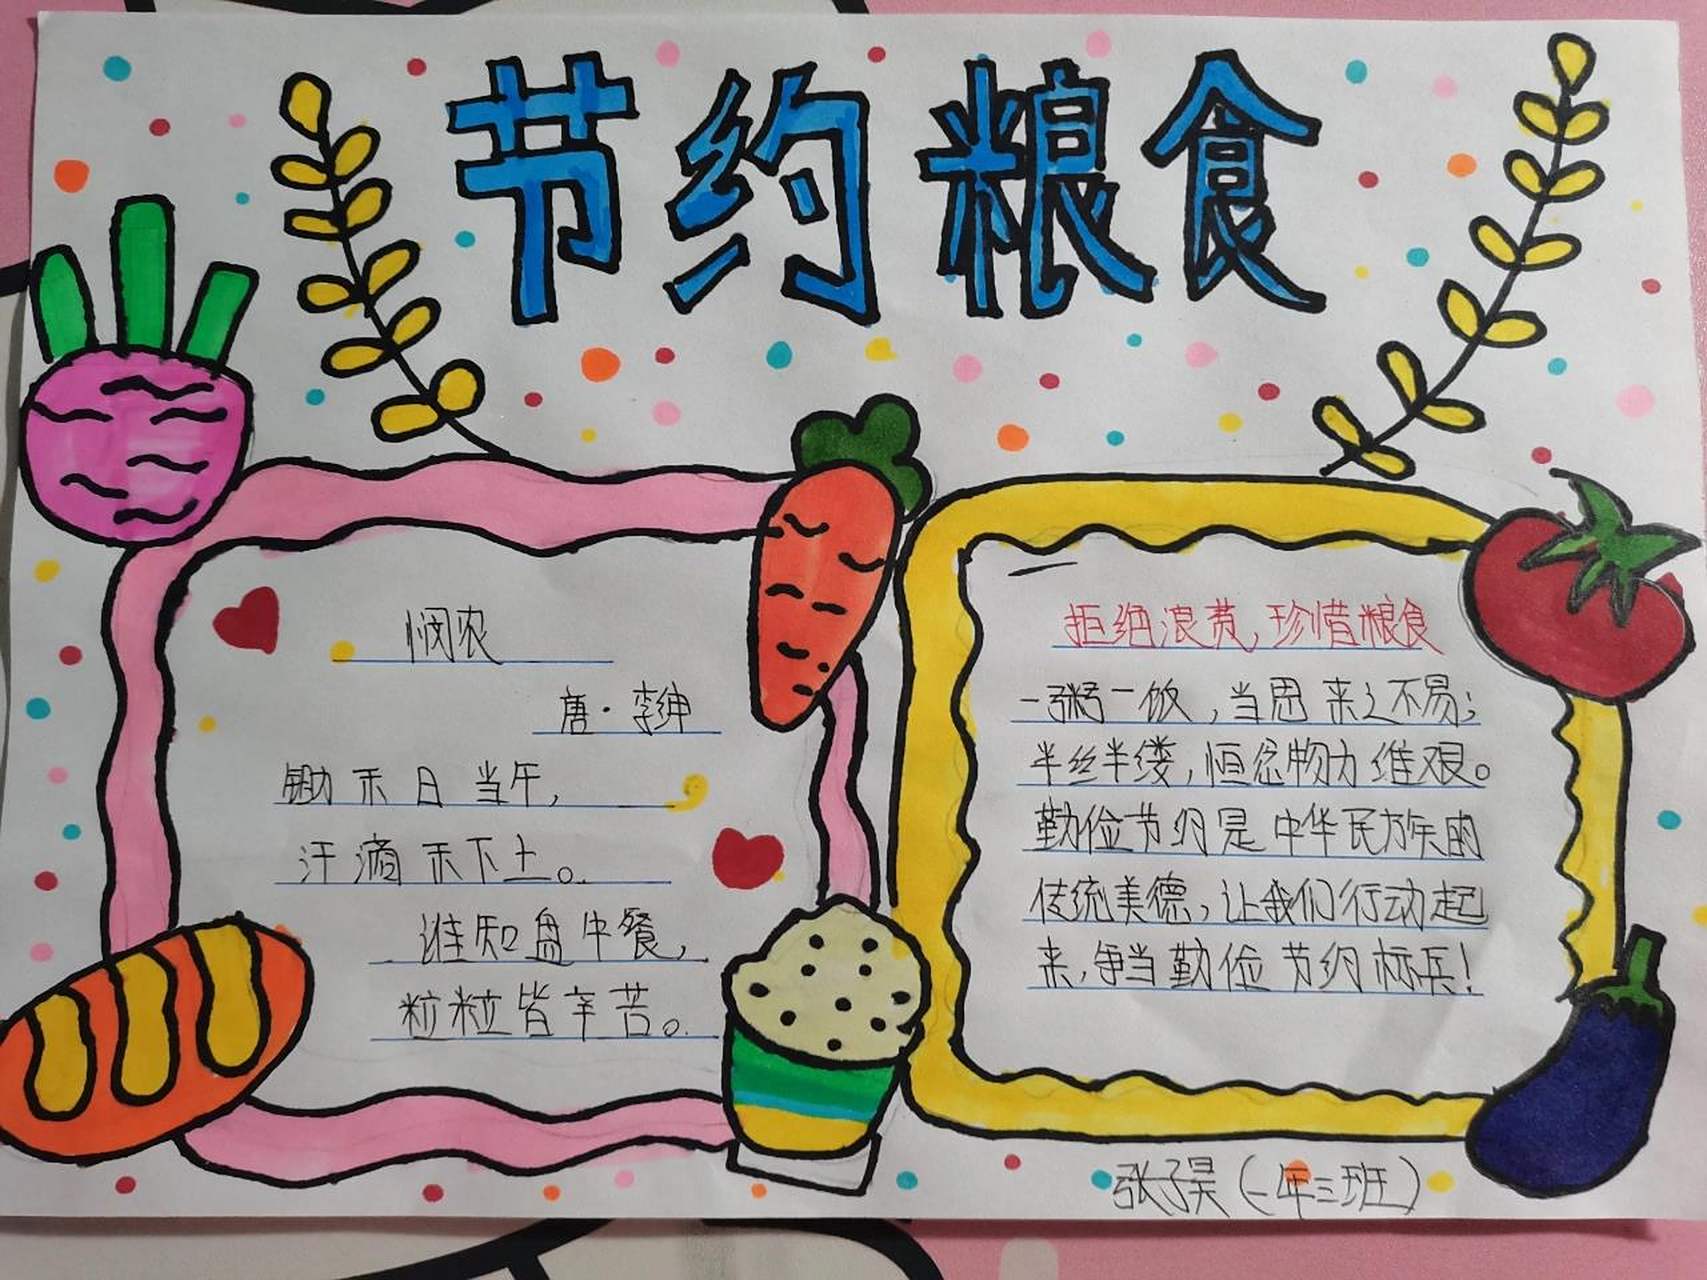 节约粮食
悯农
唐·李绅
锄禾日当午，
汗滴禾下土。
谁知盘中餐，
粒粒皆辛苦。
拒绝浪费，珍惜粮食
一粥一饭，当思来之不易；
半丝半缕，恒念物力维艰。
勤俭节约是中华民族的
传统美德，让我们行动起
来，争当勤俭节约标兵！
张子昊（一年三班）